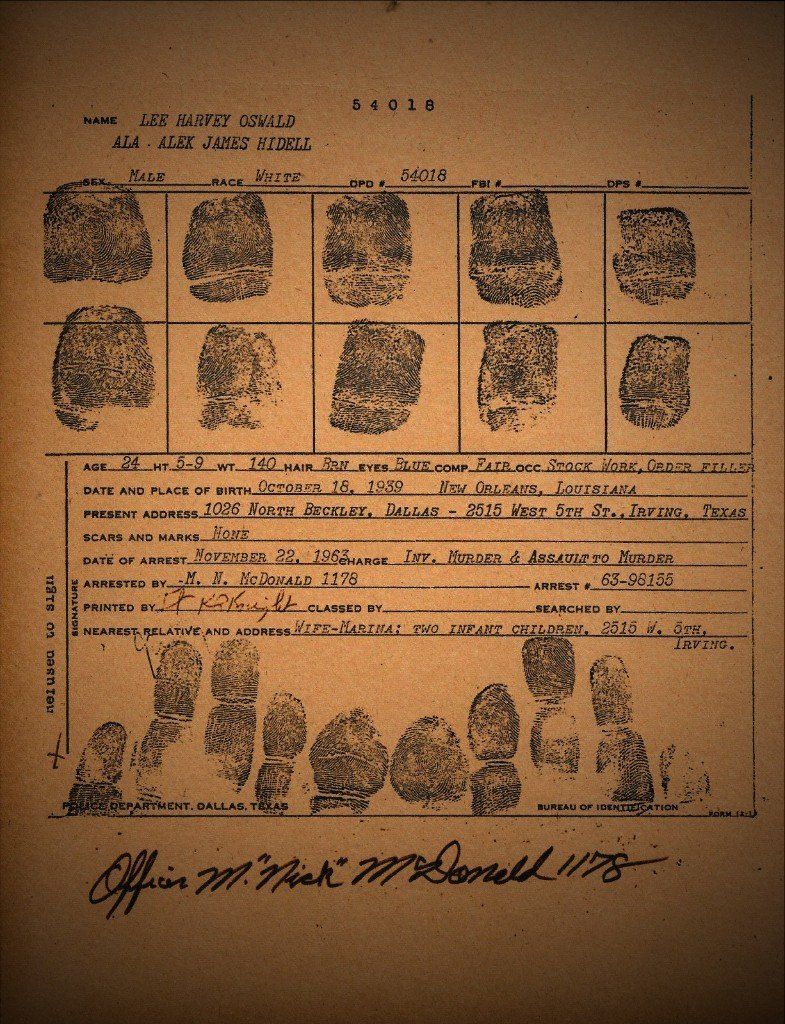 54018
NAME LEE HARVEY OSWALD
ALA. ALEK JAMES HIDELL
SEX MALE RACE WHITE DPD # 54018 FBI # DPS #
AGE 24 HT 5-9 WT 140 HAIR BRN EYES BLUE COMP FAIR OCC STOCK WORK, ORDER FILLER
DATE AND PLACE OF BIRTH OCTOBER 18, 1939 NEW ORLEANS, LOUISIANA
PRESENT ADDRESS 1026 NORTH BECKLEY, DALLAS - 2515 WEST 5TH ST., IRVING, TEXAS
SCARS AND MARKS NONE
DATE OF ARREST NOVEMBER 22, 1963 CHARGE INV. MURDER & ASSAULT TO MURDER
ARRESTED BY M. N. MCDONALD 1178 ARREST # 63-98155
PRINTED BY Knight CLASSED BY SEARCHED BY
NEAREST RELATIVE AND ADDRESS WIFE-MARINA; TWO INFANT CHILDREN, 2515 W. 5TH,
IRVING.
SIGNATURE
Refused to sign
X
POLICE DEPARTMENT, DALLAS, TEXAS BUREAU OF IDENTIFICATION
FORM
Officer M. "Nick" McDonald 1178